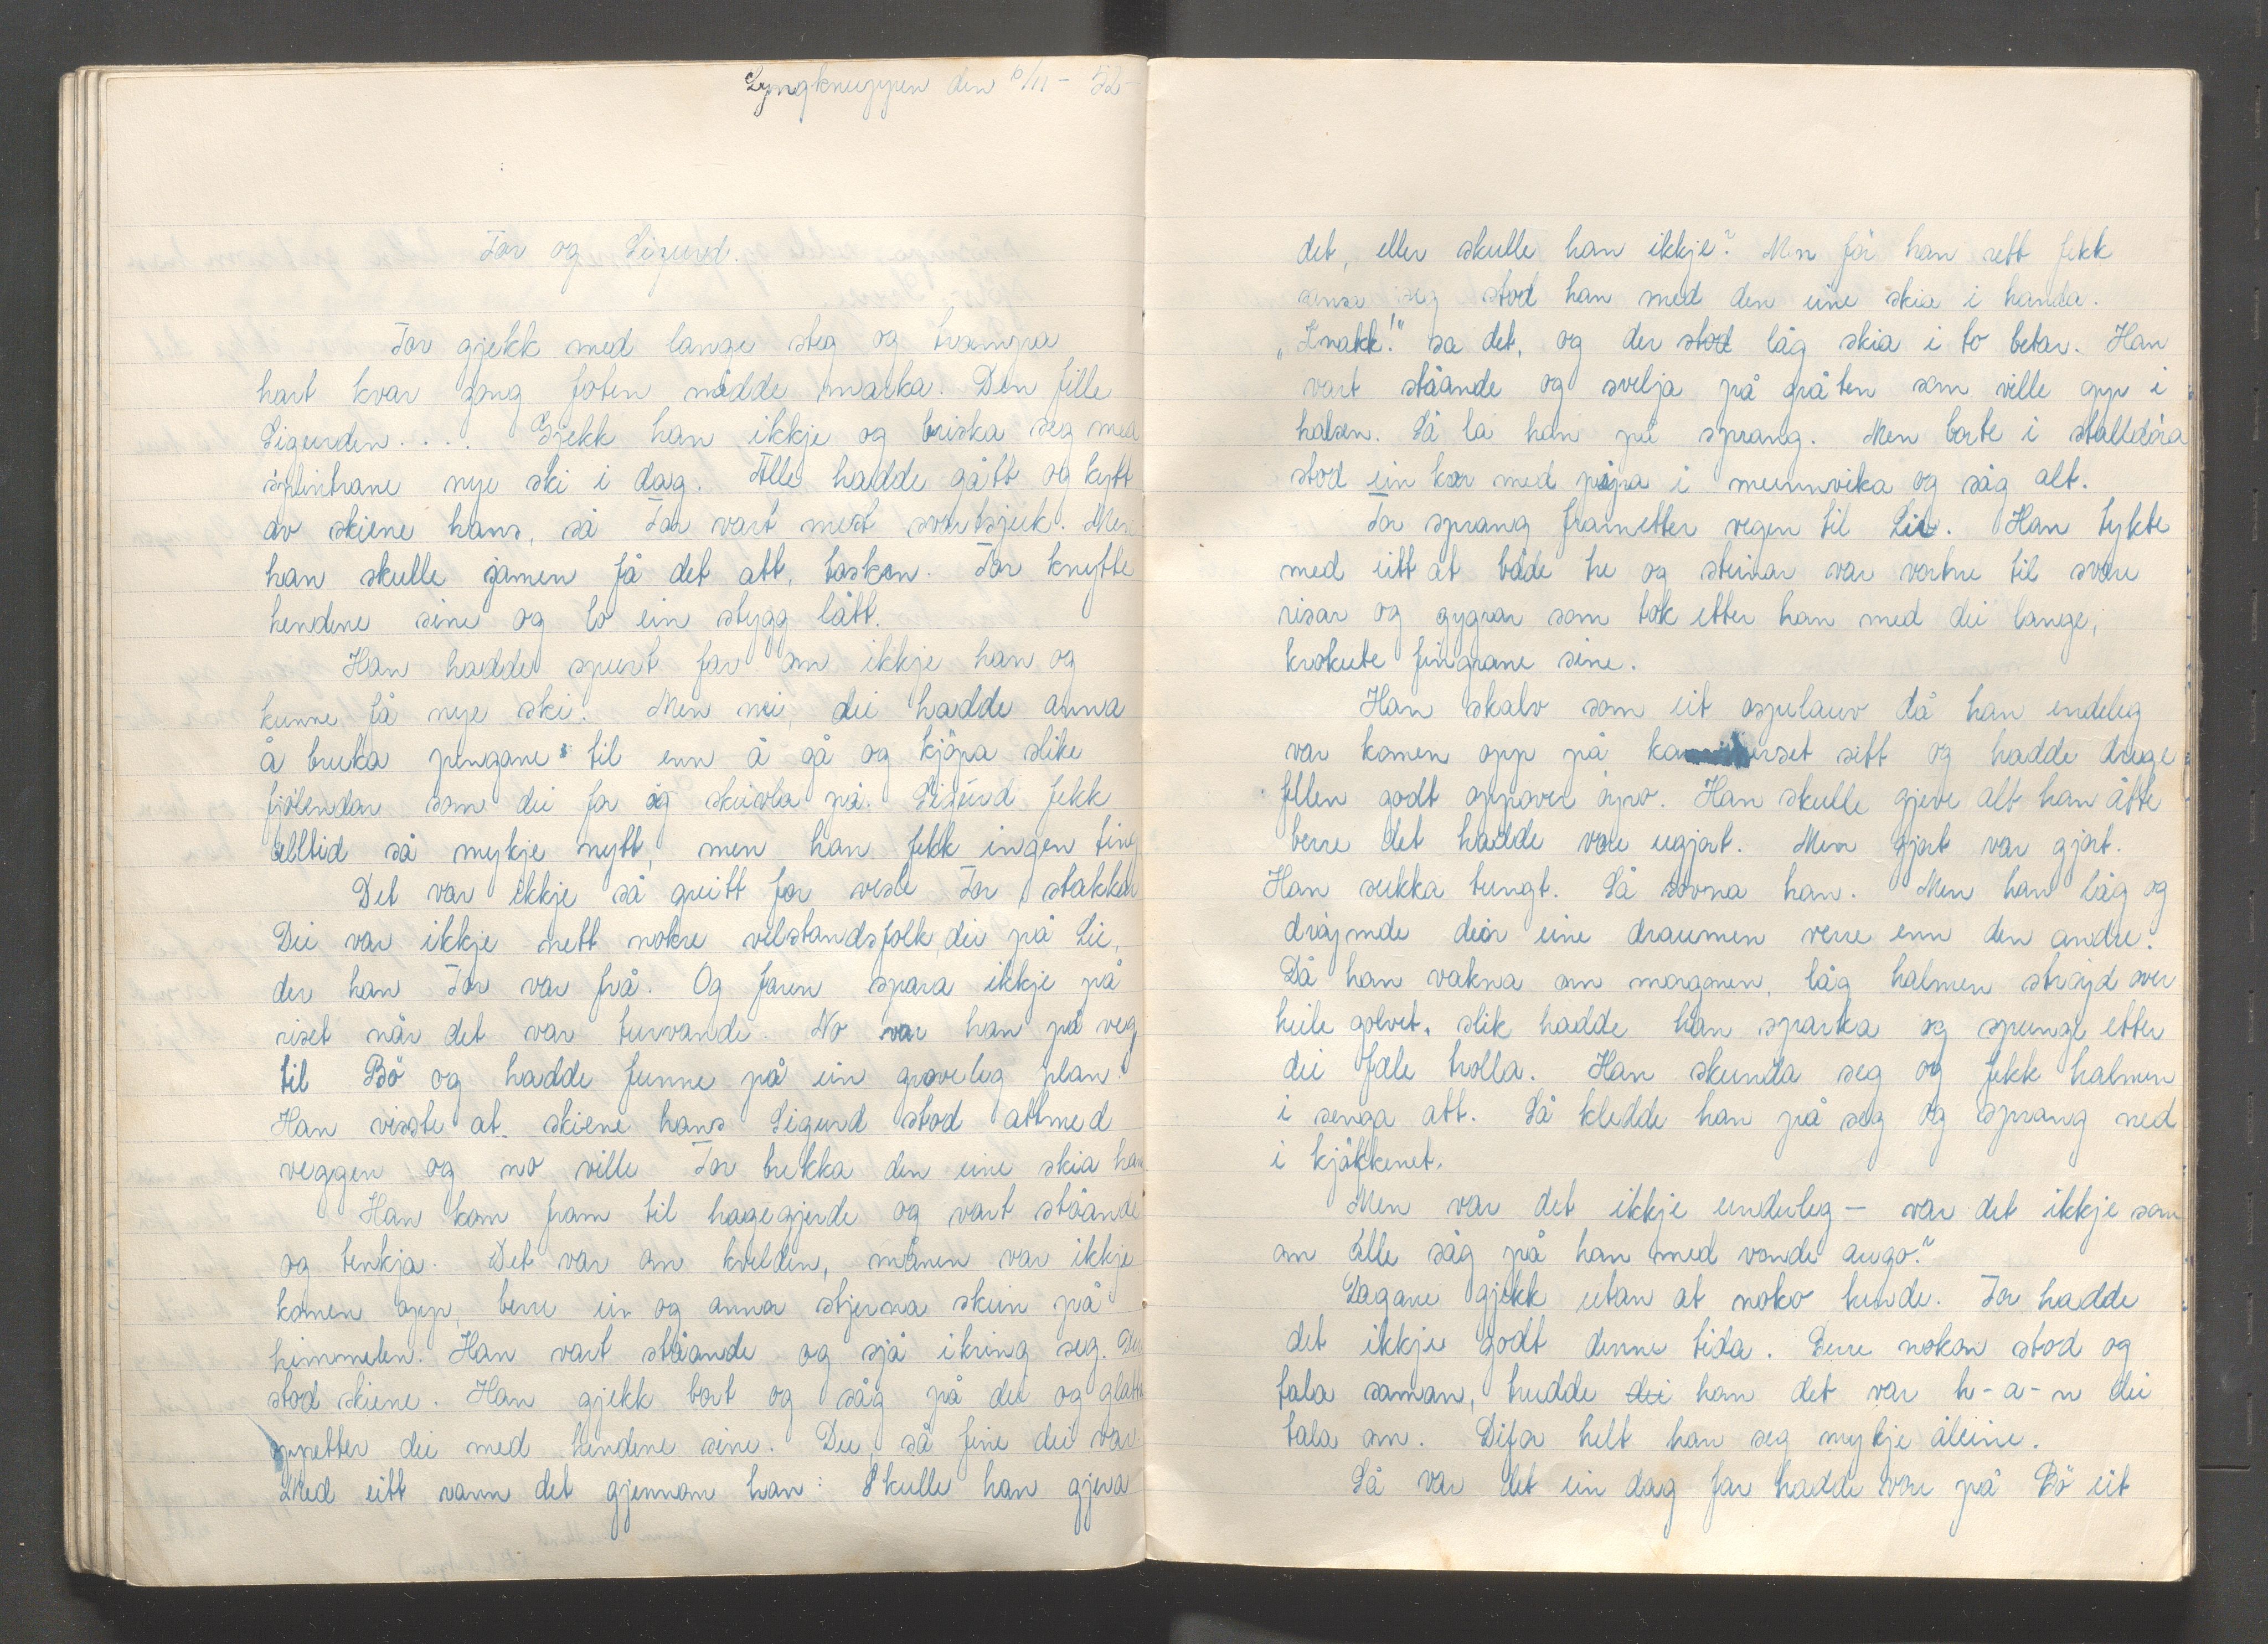 Lyngknuppen den 6/11 - 52
Tor og Sigurd.
Tor gjekk med lange steg og trampa
hart kvar gong foten nådde marka. Den fille
Sigurden.... Gjekk han ikkje og briska seg med
splinthane nye ski i dag. Alle hadde gått og kytt
av skiene hans, så Tor vart mest svartsjuk. Men
han skulle jamen få det att, tosken. Tor knytte
hendene sine og lo ein stygg lått.
Han hadde spurt far om ikkje han og
kunne få nye ski. Men nei, dei hadde anna
å bruka pengane til enn å gå og kjöpa slike
fjölendar som dei for og skeivla på. Sigurd fekk
alltid så mykje nytt, men han fekk ingen ting
Det var ikkje så greitt for vesle Tor, stakkar
Dei var ikkje nett nokre velstandsfolk, dei på Lie,
der han Tor var frå. Og faren spara ikkje på
riset når det var turvande. No var han på veg
til Bö og hadde funne på ein groveleg plan.
Han visste at skiene hans Sigurd stod attmed
veggen og no ville Tor brekka den eine skia hans
Han kom fram til hagegjerde og vart ståande
og tenkja. Det var om kvelden, månen var ikkje
komen opp, berre ein og annan stjerna skein på
himmelen. Han vart ståande og sjå ikring seg. Der
stod skiene. Han gjekk bort og såg på dei og glatta
oppetter dei med hendene sine. Dei, så fine dei var
Med eitt rann det gjennom han: Skulle han gjera
det, eller skulle han ikkje? Men för han rett fekk
sansa seg stod han med den eine skia i handa.
„Knakk!" sa det, og der stod låg skia i to betar. Han
vart ståande og svelja på gråten som ville opp i
halsen. Så la han på sprang. Men borte i stalldöra
stod ein kar med pipa i munnvika og såg alt.
Tor sprang frametter vegen til Lie. Han tykte
med eitt at både tre og steinar var vortne til svære
risar og gygrar som tok etter han med dei lange,
krokute fingrane sine.
Han skalv som eit ospelauv då han endeleg
var komen opp på kammerset sitt og hadde drege
fellen godt oppover öyro. Han skulle gjeve alt han åtte
berre det hadde vore ugjort. Men gjort var gjort.
Han sukka tungt. Så sovna han. Men han låg og
dröymde den eine draumen verre enn den andre.
Då han vakna om morgonen, låg halmen ströydd over
heile golvet, slik hadde han sparka og spunge etter
dei fæle trolla. Han skunda seg og fekk halmen
i senga att. Så kledde han på seg og sprang ned
i kjökkenet.
Men var det ikkje underleg - var det ikkje som
om alle såg på han med vonde augo?
Dagane gjekk utan at noko hende. Tor hadde
det ikkje godt denne tida. Berre nokon stod og
tala saman, trudde dei han det var h-a-n dei
tala om. Difor helt han seg mykje åleine.
Så var det ein dag far hadde vore på Bö eit